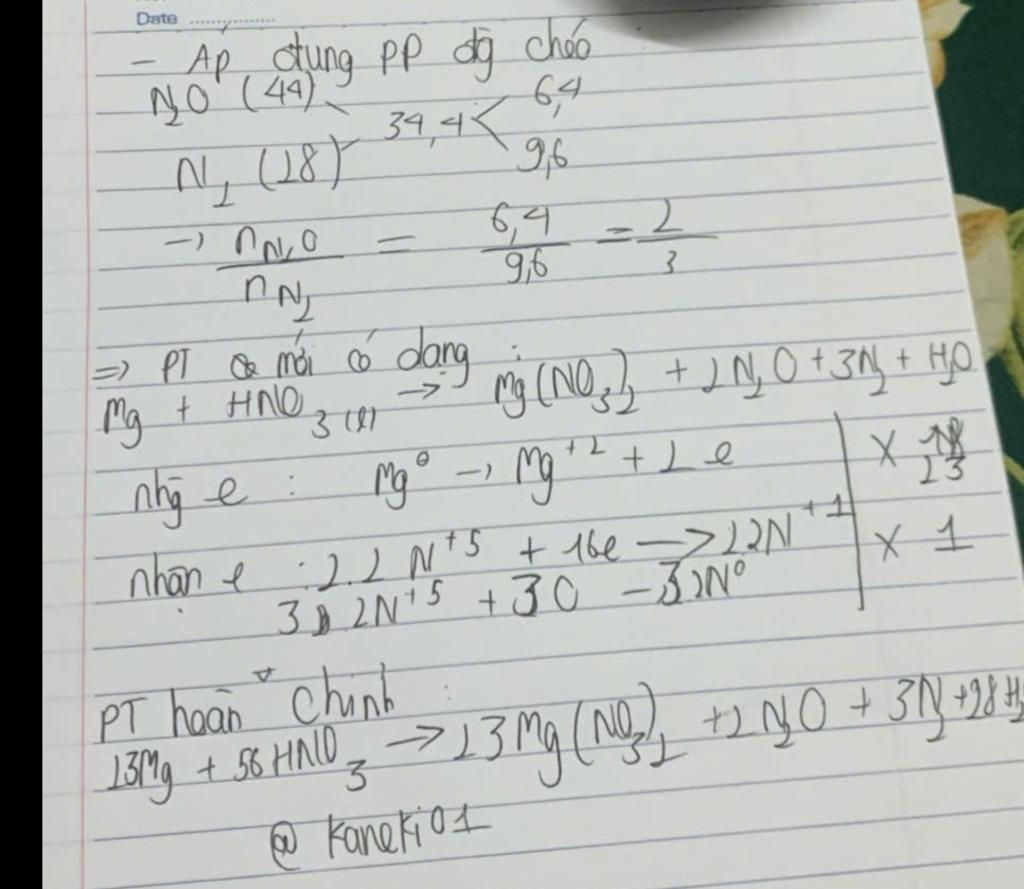 Date ..............
- Áp dụng PP đg chéo
N2O (44) 6,4
34,4
N2 (28) 9,6
→ nN2O / nN2 = 6,4 / 9,6 = 2 / 3
=> PT mới có dạng :
Mg + HNO3 (l) → Mg(NO3)2 + 2N2O + 3N2 + H2O
nhg e : Mg⁰ → Mg+2 + 2e x 23
nhận e : 2.2 N+5 + 16e → 2.2N+1 x 1
3 2N+5 + 30 - 3 2N⁰
PT hoàn chỉnh :
23Mg + 56HNO3 → 23Mg(NO3)2 + 2N2O + 3N2 + 28H2
@ Kaneki01